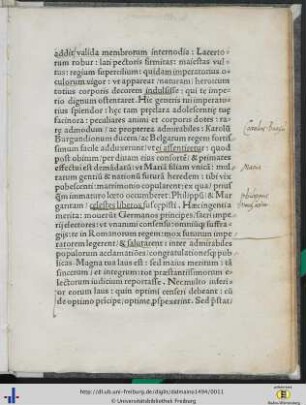 addit valida membrorum internodia: Lacerto-
rum robur: lati pectoris firmitas: maiestas vul-
tus: regium supercilium: quidam imperatorius o-
culorum vigor: ut appareat / naturam: heroicum
totius corporis decorem indulsisse: qui te impe-
rio dignum ostentaret. Hic generis tui imperato-
rius splendor: hęc tam preclara adolescentię tuę
facinora: peculiares animi et corporis dotes: ra-
rę admodum: ac propterea admirabiles: Karolū
Burgundionum ducem: ac Belgarum regem fortis-
simum facile adduxerunt: ut ei assentiretur: quod
post obitum / per diuam eius consortē: & primates
effectui est demādatū: ut Mariā filiam vnicā: mul-
tarum gentiū & nationū futurā heredem: tibi vix
pubescenti: matrimonio copularent: ex qua / prius
ꝙm immaturo leto occumberet. Philippū: & Mar-
garitam: cęlestes liberos suscepisti. Hęc ingentia
merita: mouerūt Germanos principes: sacri impe-
rij electores: ut vnanimi consensu: omniūꝙ suffra-
gijs: te in Romanorum regem: mox futurum impe-
ratorem legerent: & salutarent: inter admirabiles
populorum acclamatiōes: congratulationesꝙ pub-
licas. Magna tua laus est: sed maius meritum: tā
sincerum / et integrum: tot pręstantissimorum e-
lectorum iudicium reportasse. Nec multo inferi-
or eorum laus: quin optimi censeri debeant: cū
de optimo prīcipe / optime / pspexerint. Sed pstat:
Maria
http://dl.ub.uni-freiburg.de/diglit/dalmaino1494/0011
© Universitätsbibliothek Freiburg